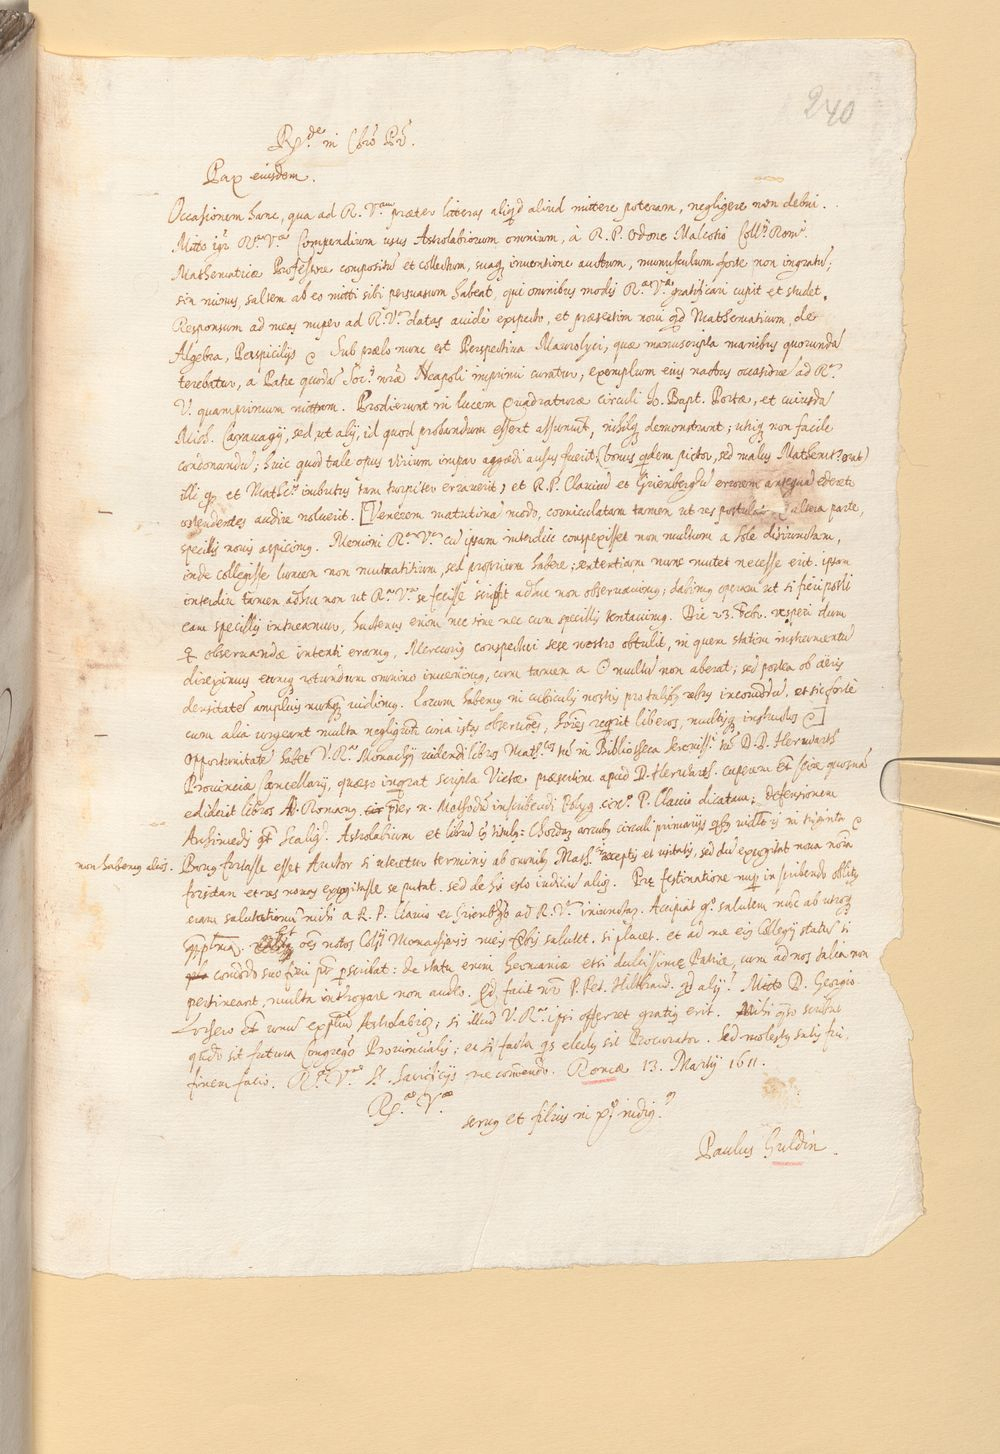 240
R.de in Chro P̃r.
Pax eiusdem.
Occasionem hanc, qua ad R. V.am præter litteras aliqd aliud mittere poteram, negligere non debui.
Mitto igr R.æ V.æ Compendium usus Astrolabiorum omnium, à R. P. Odone Malcotio Coll.ij Rom.i
Mathematicæ Professore compositũ et collectum, suaq inventione auctum, munusculum forte non ingratũ;
sin minus, saltem ab eo mitti sibi persuasum habeat, qui omnibus modis R.æ V.æ gratificari cupit et studet.
Responsum ad meas nuper ad R. V. datas avidè expecto, et præsertim novi qd Mathematicum, de
Algebra, Perspicilijs &c Sub prælo nunc est Perspectiva Maurolyci, quæ manuscripta manibus quorundã
terebatur, a Patre quodã Soc. nræ Neapoli imprimi curatur, exemplum eius nactus occasionẽ ad R.
V. quamprimum mittam. Prodierunt in lucem Quadraturæ circuli Jo. Bapt. Portæ, et cuiusdã
Mich. Caravagij, sed ut alij, id quod probandum essent assumũt, nihilq demonstrant; utriq non facile
condonandũ; huic quod tale opus virium impar aggredi ausus fuerit (bonus qdem pictor, sed malus Mathemt. erat)
illi qp et Math.is imbutus tam turpiter erraverit, et R. P. Clavium et Grienbergerũ errorem antequã ederẽt
ostendentes audire noluerit. [Venerem matutinã modo, corniculatam tamen ut res postulat ex altera parte,
specillis novis aspicimq. Memini R.am V.am cũ ipsam interdiu conspexisset non multum a Sole disiunctam,
inde collegisse lumen non mutuatitium, sed proprium habere; sententiam nunc mutet necesse erit. ipsam
interdiu tamen adhuc non ut R.a V.a se fecisse scripsit adhuc non observavimq; dabimq operam ut si fieri possit
eam specillis intueamur, hactenus enim nec sine nec cum specillis tentavimq. Die 23. Febr. vesperi dum
♀ observandæ intenti eramq, Mercuriq conspectui sese nostro obtulit, in quem statim instrumentũ
direximus eumq rotundum omnino invenimq, cum tamen a ☉ multũ non aberat; sed postea ob aëris
densitatẽ amplius nunq vidimq. Locum habemq in cubiculis nostris pro talibq rebq incommodũ, et sic fortè
cum alia urgeant multa negligunt curia istæ observones, hoies requirit liberos, multisq instructos &c]
Opportunitatẽ habet V. R.a Monachij videndi libros Math.cos tũ in Bibliotheca Serenissi. tũ D. D. Herwarti
Provinciæ Cancellarij, quæso inquirat scripta Vietæ præsertim apud D. Herwarth. cuperem et scire quosnã
ediderit libros Ad. Romanq præter n. Methodũ inscribendi P. Clavio dicatam; defensionem
Archimedis et Scalig. Astrolabium et librũ cuius titulq: Chordaq arcubq circuli primarijs
non habemq alios.
Bonq fortasse esset Auctor si uteretur terminis ab omnibq Math. receptis et usitatis, sed dũ excogitat nova noia
forsitan et res novas excogitasse se putat. sed de his esto iudiciũ aliq. Præ festinatione nup in scribendo oblitq
eram salutationũ mihi a R. P. Clavio et Grienbgo ad R. V. iniunctaq. Accipiat go salutem nũc ab utroq
qplrimã. et oẽs notos Collij Monachiensis meis vbis salutet. si placet. et ad me eiq Collegij statũ si
comõdo suo fieri põt pscribat: de statu enim Germaniæ etsi dulcissimæ Patriæ, cum ad nos talia non
pertineant, multa interrogare non audeo. Qd facit nr P. Pet. Hilbrand. qd alij? Mitto D. Georgio
Lochero et unũ explũ Astrolabioq; si illud V. R.a ipsi offerret gratũ erit. Mihi qso scribat
quãdo sit futura Congreg.o Provincialis; et si facta qs electq sit Procurator. Sed molestq satis fui,
finem facio. R.æ V.æ SS. Sacrificijs me comẽndo. Romæ 13. Martij 1611.
R.æ V.æ
servq et filius in Xo indig.
Paulus Guldin.